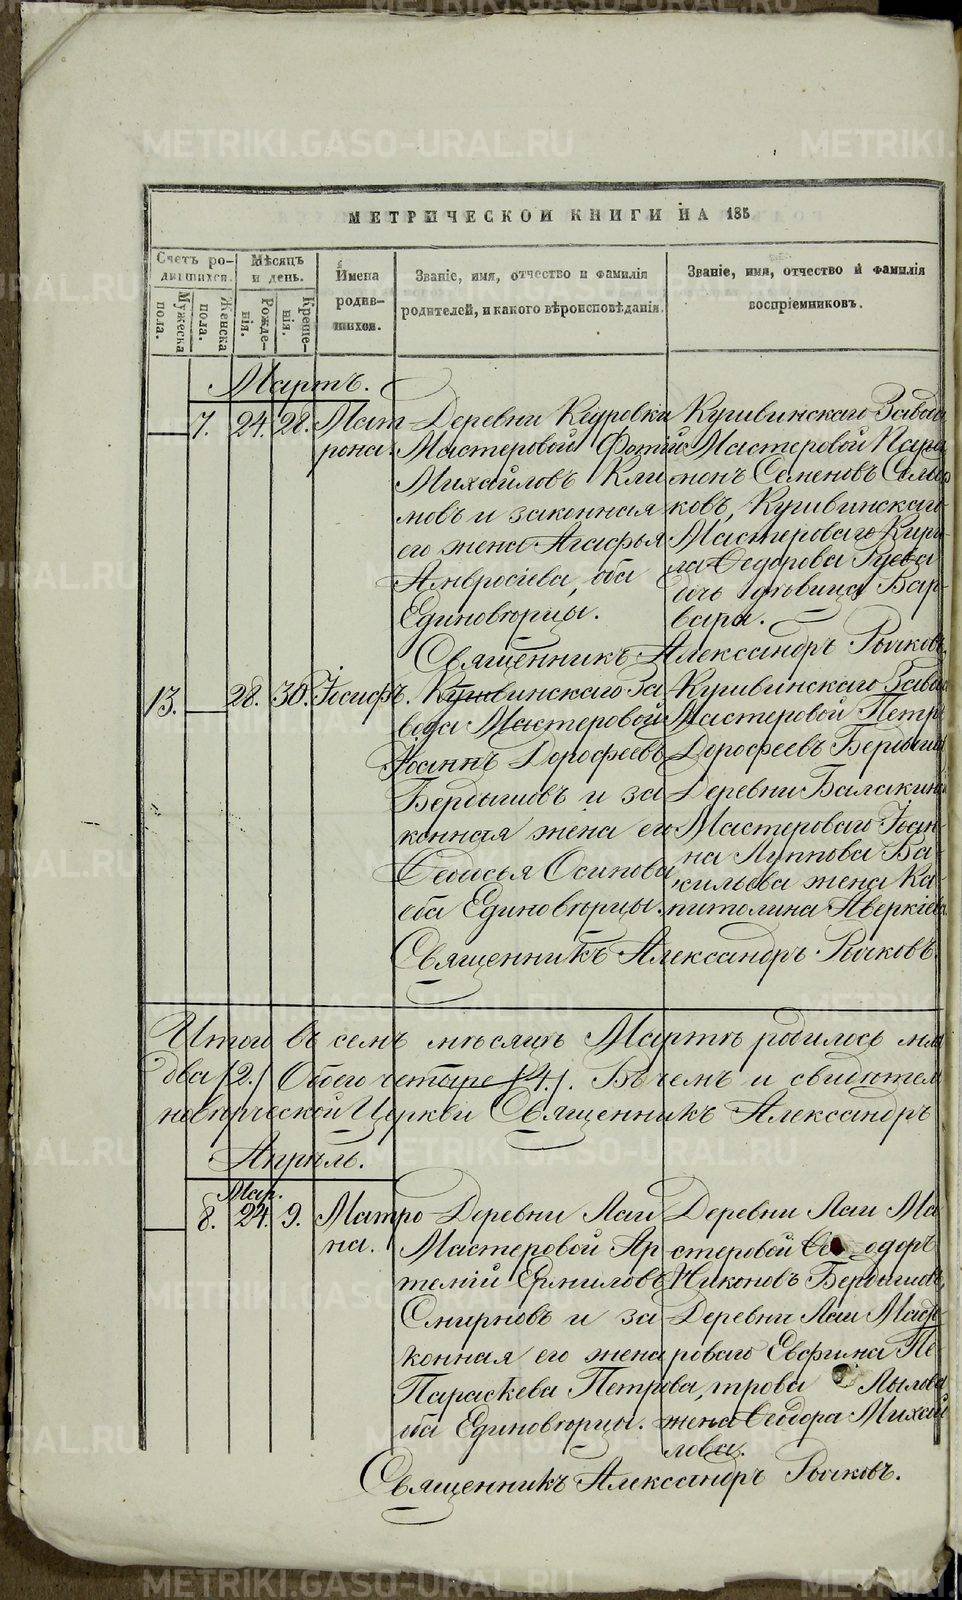 METRIKI.GASO-URAL.RU
МЕТРИЧЕСКОЙ КНИГИ НА 185
Счетъ ро-
дившихся.
Мужеска пола.
Женска пола.
Мѣсяцъ
и день.
Рожде-
нія.
Креще-
нія.
Имена
родив-
шихся.
Званіе, имя, отчество и фамилія
родителей, и какого вѣроисповѣданія.
Званіе, имя, отчество и фамилія
воспріемниковъ.
Мартъ.
7. 24. 28. Мат
рона.
Деревни Кедровки
Мастеровой Фотій
Михайловъ Кли
мовъ и законная
его жена Агафья
Амвросіева, оба
Единовѣрцы.
Кушвинскаго Завода
Мастеровой Пара
монъ Семеновъ
ковъ, Кушвинскаго
Мастероваго Кири
ла Ѳедорова Гусева
дочь дѣвица Вар-
вара.
Священникъ Александръ Рычковъ.
13. 28. 30. Іосифъ.
Кушвинскаго За
вода Мастеровой
Іоаннъ Дорофеевъ
Бердышовъ и за
конная жена его
Ѳедосья Осипова
оба Единовѣрцы.
Кушвинскаго Завода
Мастеровой Петръ
Дорофеевъ Бердышов
Деревни Балакиной
Мастероваго Іоан-
на Луппова Ва-
сильева жена Ка-
питолина Аверкіева
Священникъ Александръ Рычковъ.
Итого въ семъ мѣсяцѣ Мартѣ родилось
два /2./ Обоего четыре /4./. Въ чемъ и свидѣтел
новѣрческой Церкви Священникъ Александръ
Апрѣль.
Мар.
8. 24. 9. Матро
на.
Деревни Лаи
Мастеровой Ар
темій Ермиловъ
Смирновъ и за
конная его жена
Параскева Петрова,
оба Единовѣрцы.
Деревни Лаи Ма
стеровой Ѳе одоръ
Никоновъ Бердышовъ,
Деревни Лаи Маст
роваго Евфима Пе
трова Лылова
жена Ѳеодора Михай
лова.
Священникъ Александръ Рычковъ.